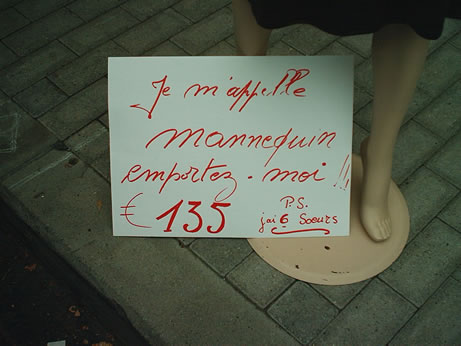 Je m'appelle
mannequin
emportez-moi !!!
€ 135
P.S.
jai 6 Soeurs